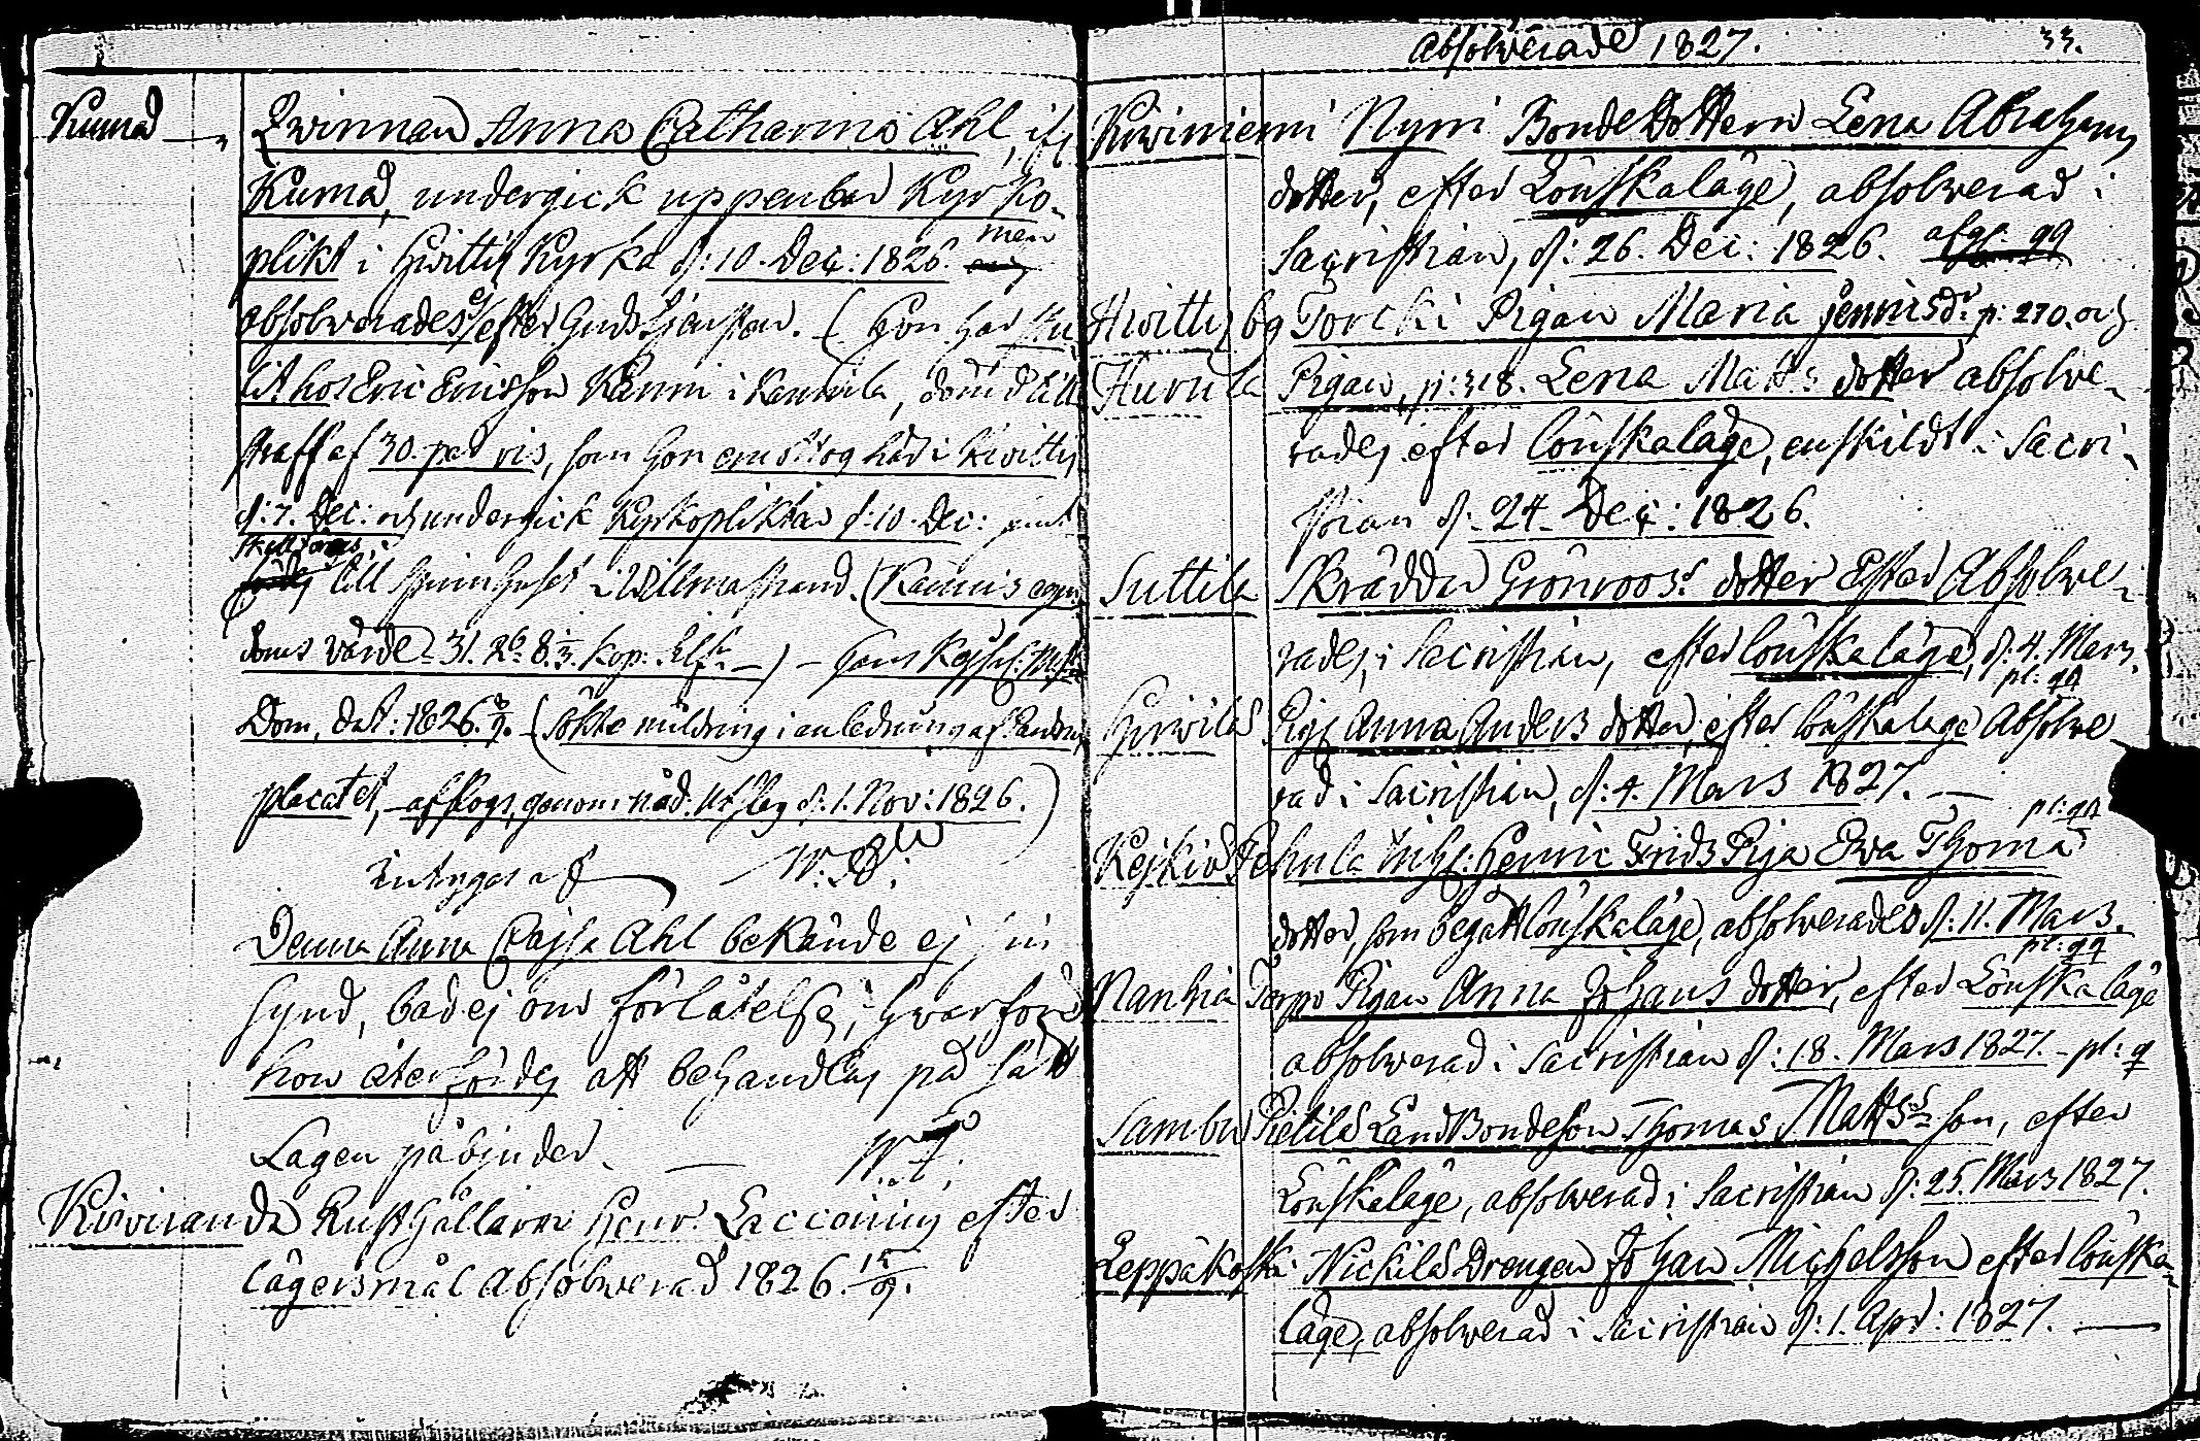 Kumå Qwinnan Anna Catharina Ahl, ifr.
Kumå, undergick uppenbar Kyrko-
plikt i Hwittis Kyrka d: 10. Dec: 1826. men
absolverades ej efter Gudstjensten. (Hon har stu-
lit hos Eric Ericsson Känni i Kannila, dömd till
straff af 30. par ris, som hon emottog här i Hwittis
d: 7. Dec: och undergick Kyrkoplikten d: 10. Dec: samt
skulle
till Spinnhuset i Willmanstrand. (Kännis egen-
doms värde 31. 8. kop.
Dom, dat: 1826. (sökte mildring i anledning af
placatet, afslogs, genom nåd. Utslag d: 1. Nov: 1826.)
intygas af
Denna Anna Cajsa Ahl bekände ej sin
synd, bad ej om förlåtelse, hvarföre
hon återfördes att behandlas på sätt
Lagen påbjuder.
Kiviranda Rusthållaren Henr. Lacconius efter
lägersmål Absolverad 1826.
Absolverade 1827. 33.
Kiviniemi Nyni Bonde Dottern Lena Abrahams
dotter, efter Lönskaläge, absolverad i
Sacristian, d: 26. Dec: 1826.
Hwittis by Torcki Pigan Maria Jennisdr p: 270. och
Huru la Pigan, p: 318. Lena Matts dotter absolve-
rades efter lönskaläge, enskildt i Sacri-
stian d: 24. Dec: 1826.
Suttila Skräddar Grönroos' dotter Ester Absolve-
rades i Sacristian, efter lönskaläge, d: 4. Mars.
pl: qq
Pig. Anna Anders dotter, efter lönskaläge Absolve-
rad i Sacristian, d: 4. Mars 1827. —
pl: qq
Kejkiö Henric Frids Piga Ewa Thomæ
dotter, som begått lönskaläge, absolverades d: 11. Mars.
pl: qq
Nanhia Torpp Pigan Anna Johans dotter, efter Lönskaläge
absolverad i Sacristian d: 18. Mars 1827. - pl: q
Sambu Pietilä Landbondeson Thomas Matts son, efter
Lönskaläge, absolverad i Sacristian d: 25. Mars 1827.
Leppäkoski Nickilä Drengen Johan Michelsson efter lönska-
läge, absolverad i Sacristian d: 1. Apr: 1827. —